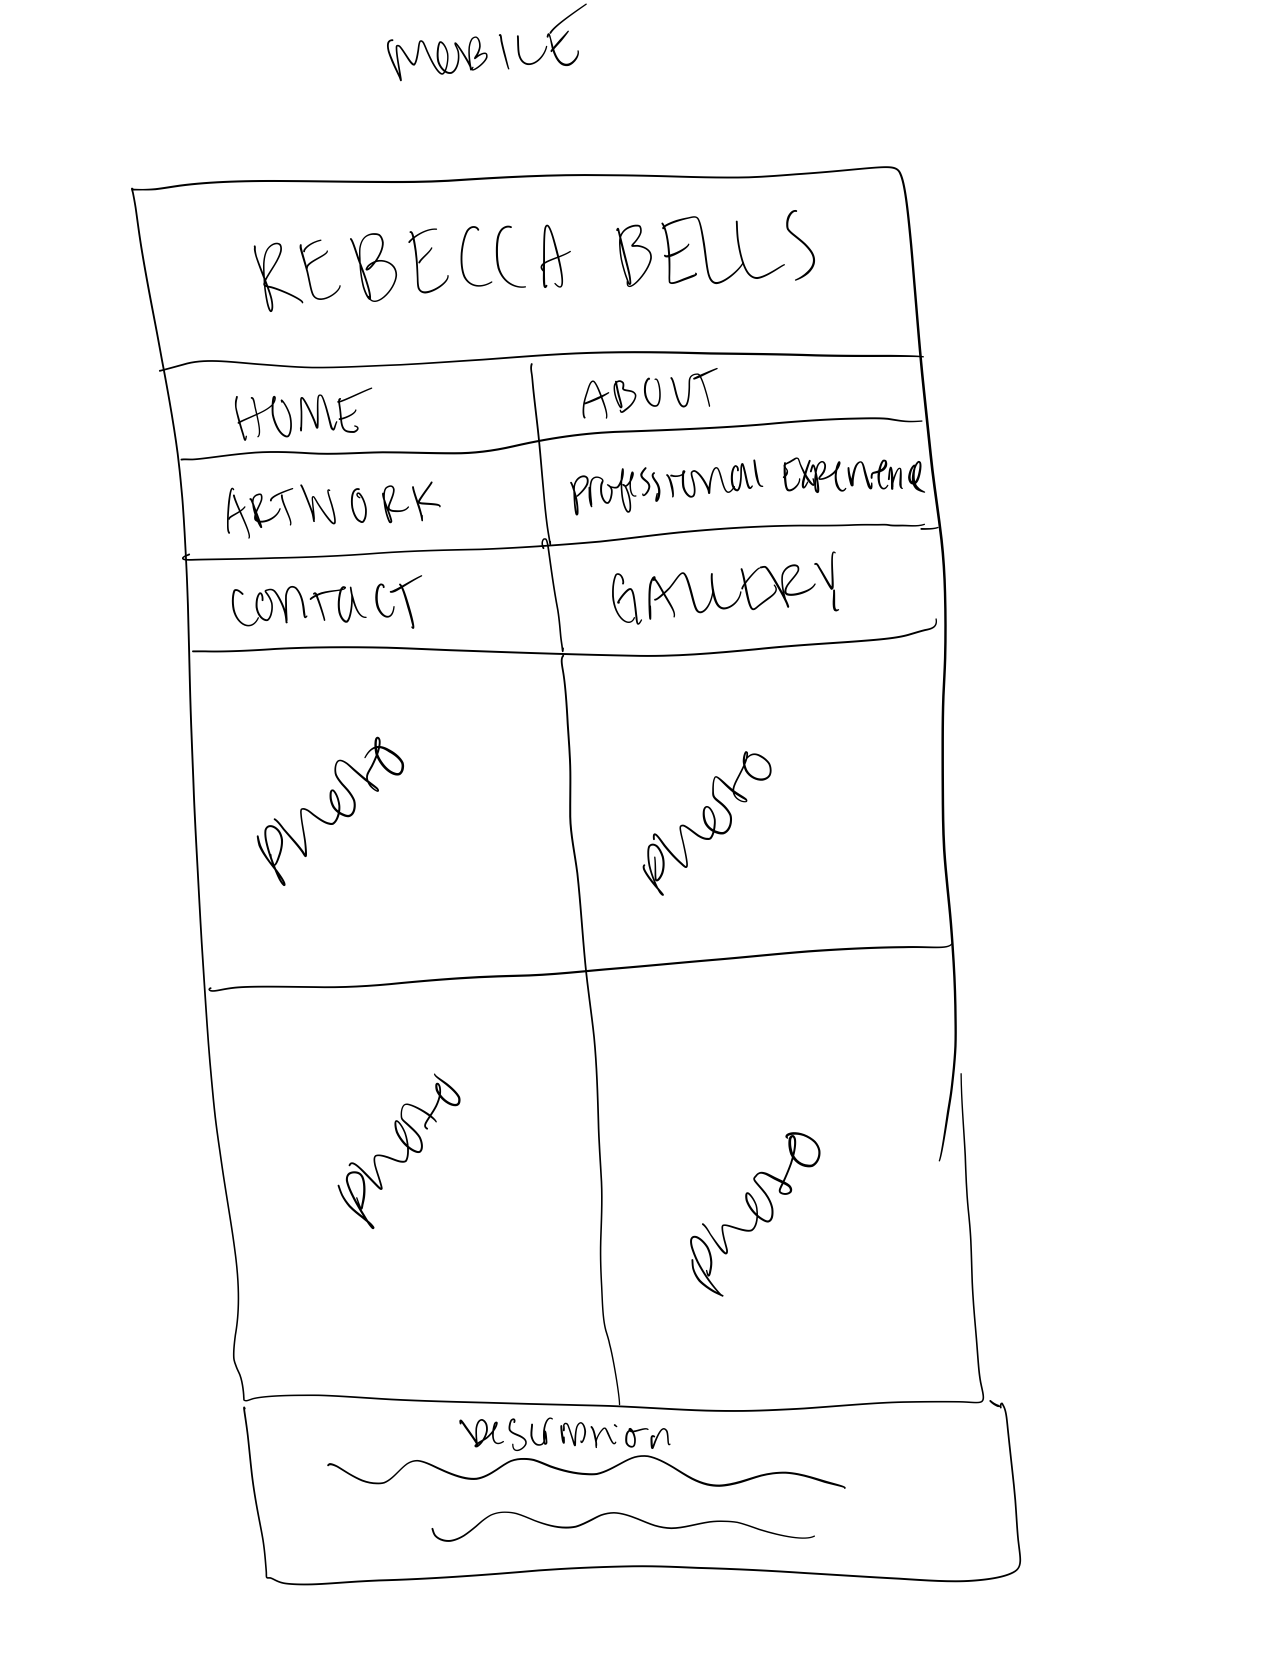 MOBILE
REBECCA BELLS
HOME
ABOUT
ARTWORK
Professional Experience
CONTACT
GALLERY
photo
photo
photo
photo
Description